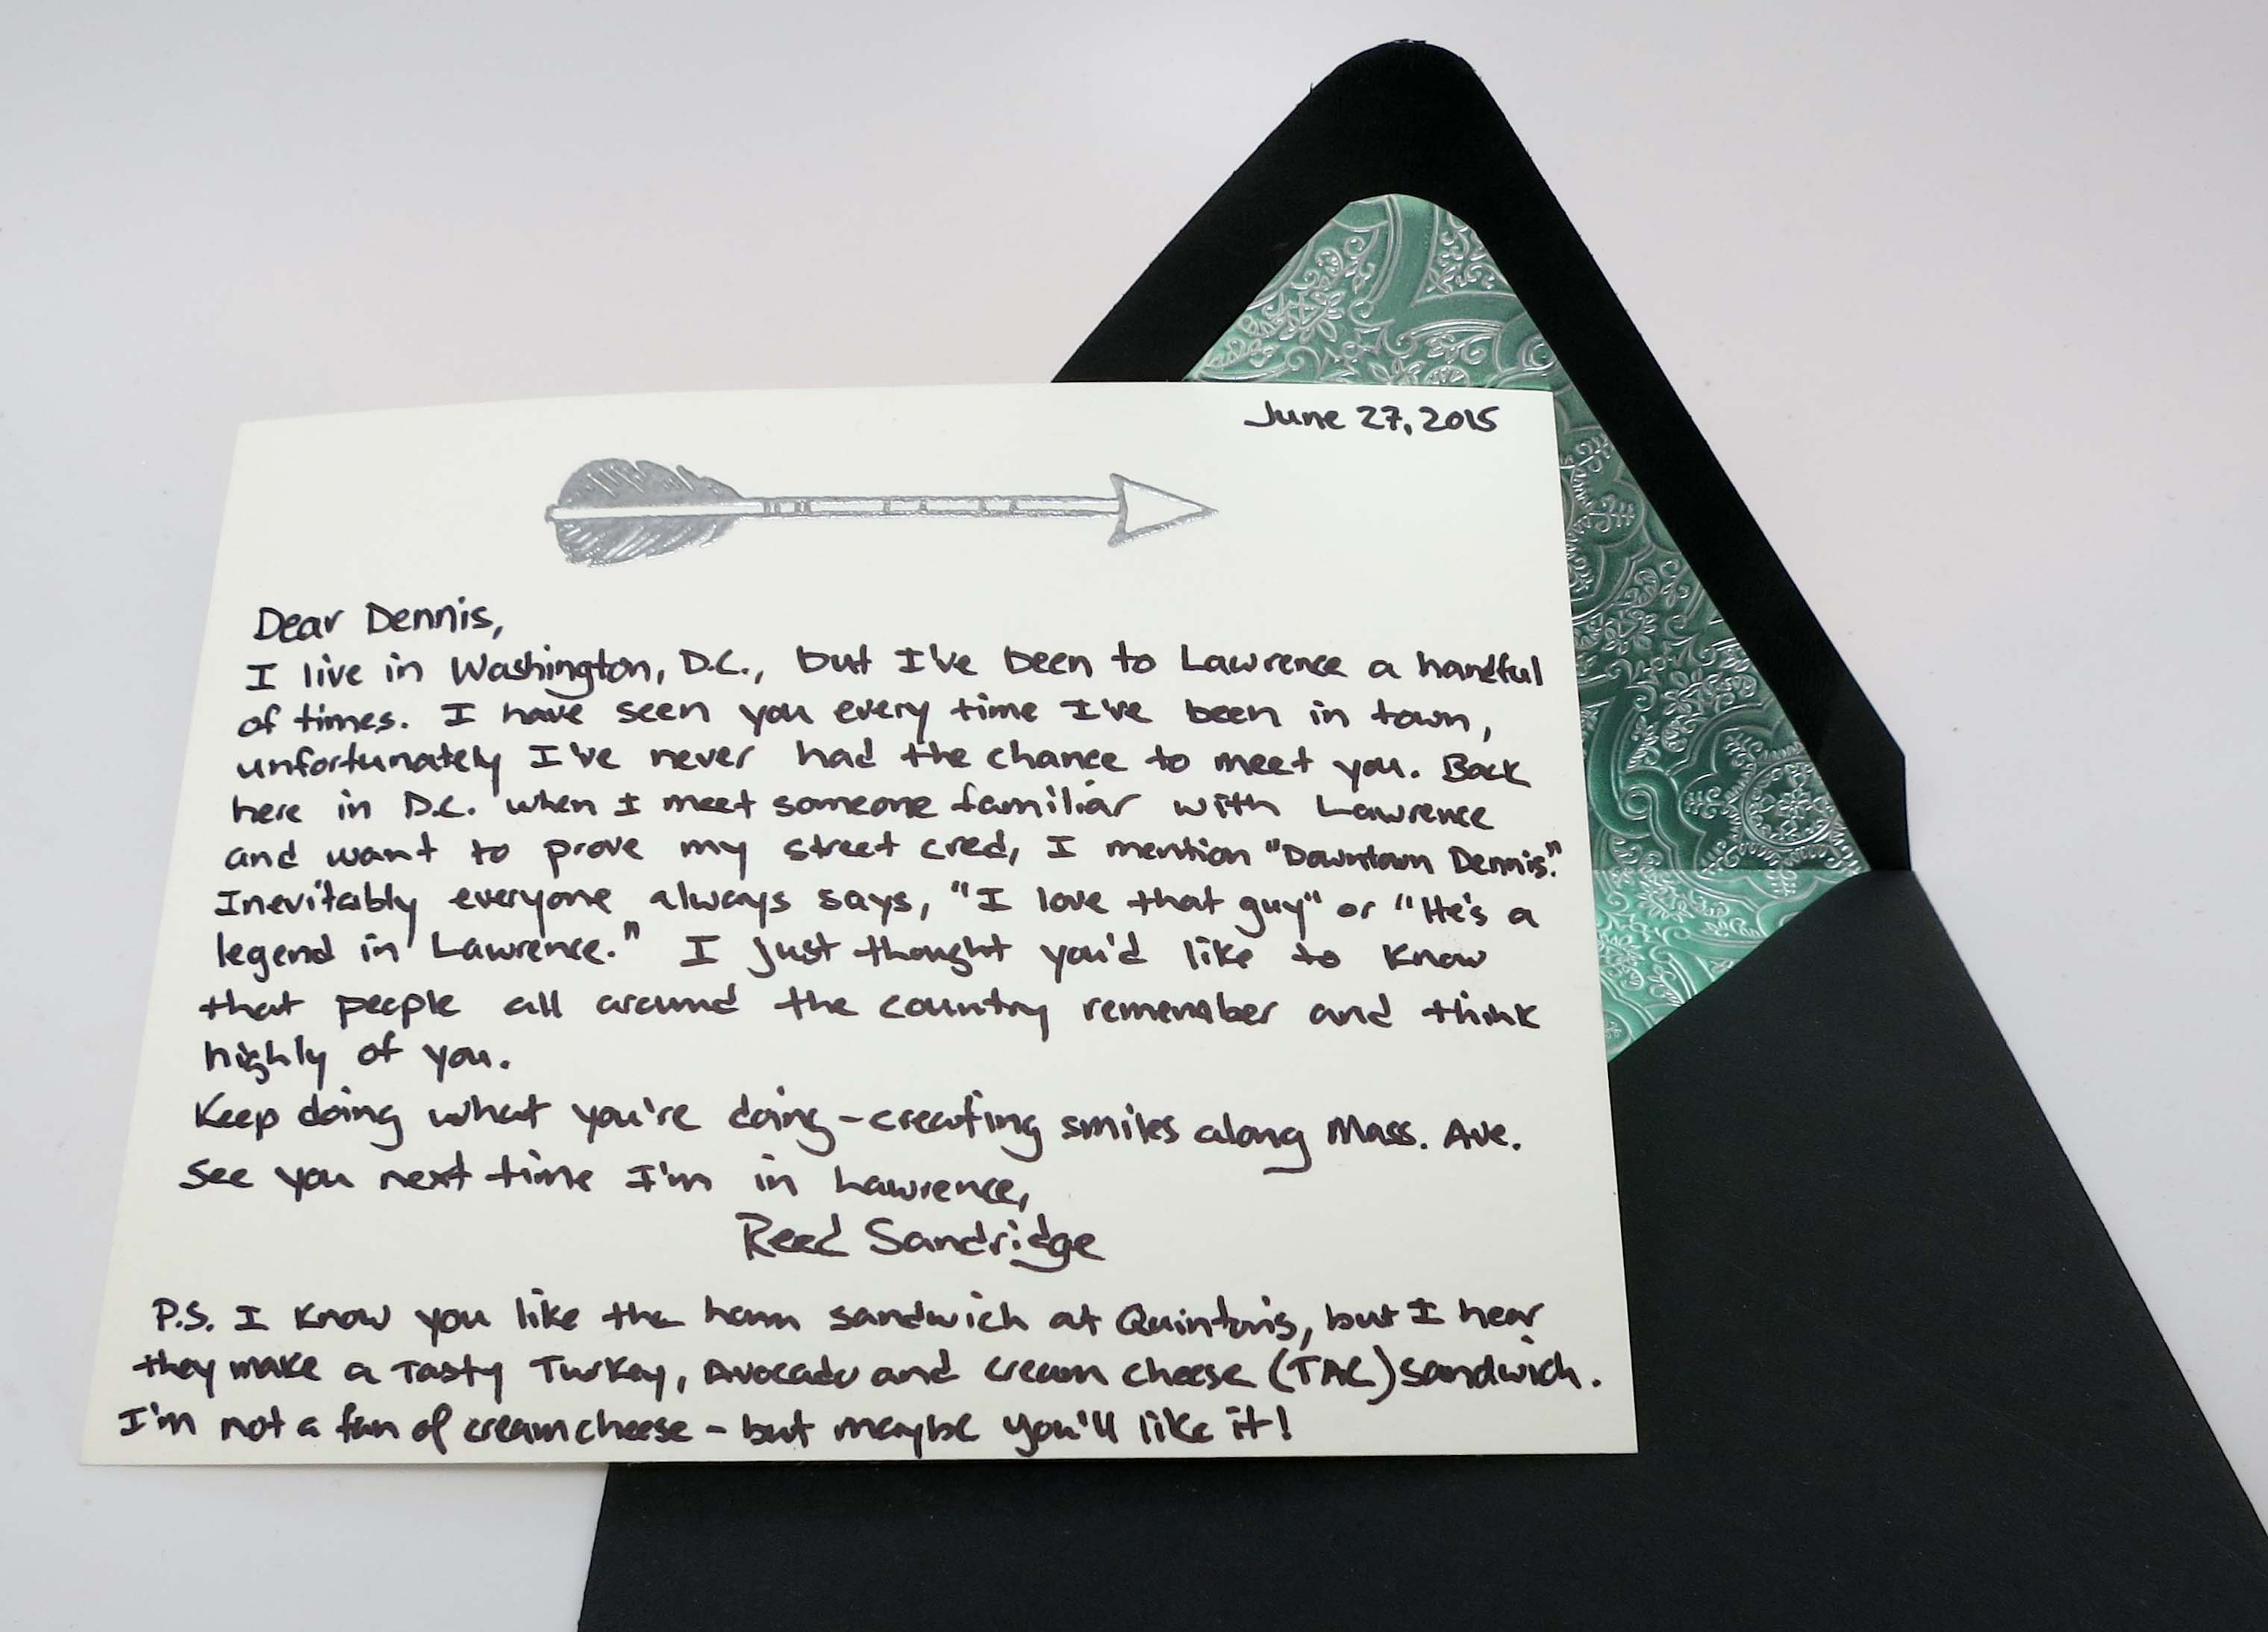 June 27, 2015
Dear Dennis,
I live in Washington, D.C., but I've been to Lawrence a handful
of times. I have seen you every time I've been in town,
unfortunately I've never had the chance to meet you. Back
here in D.C. when I meet someone familiar with Lawrence
and want to prove my street cred, I mention "Downtown Dennis."
Inevitably everyone always says, "I love that guy" or "He's a
legend in Lawrence." I just thought you'd like to know
that people all around the country remember and think
highly of you.
Keep doing what you're doing - creating smiles along Mass. Ave.
See you next time I'm in Lawrence,
Reed Sandridge
P.S. I know you like the ham sandwich at Quinton's, but I hear
they make a Tasty Turkey, Avocado and cream cheese (TAC) sandwich.
I'm not a fan of cream cheese - but maybe you'll like it!